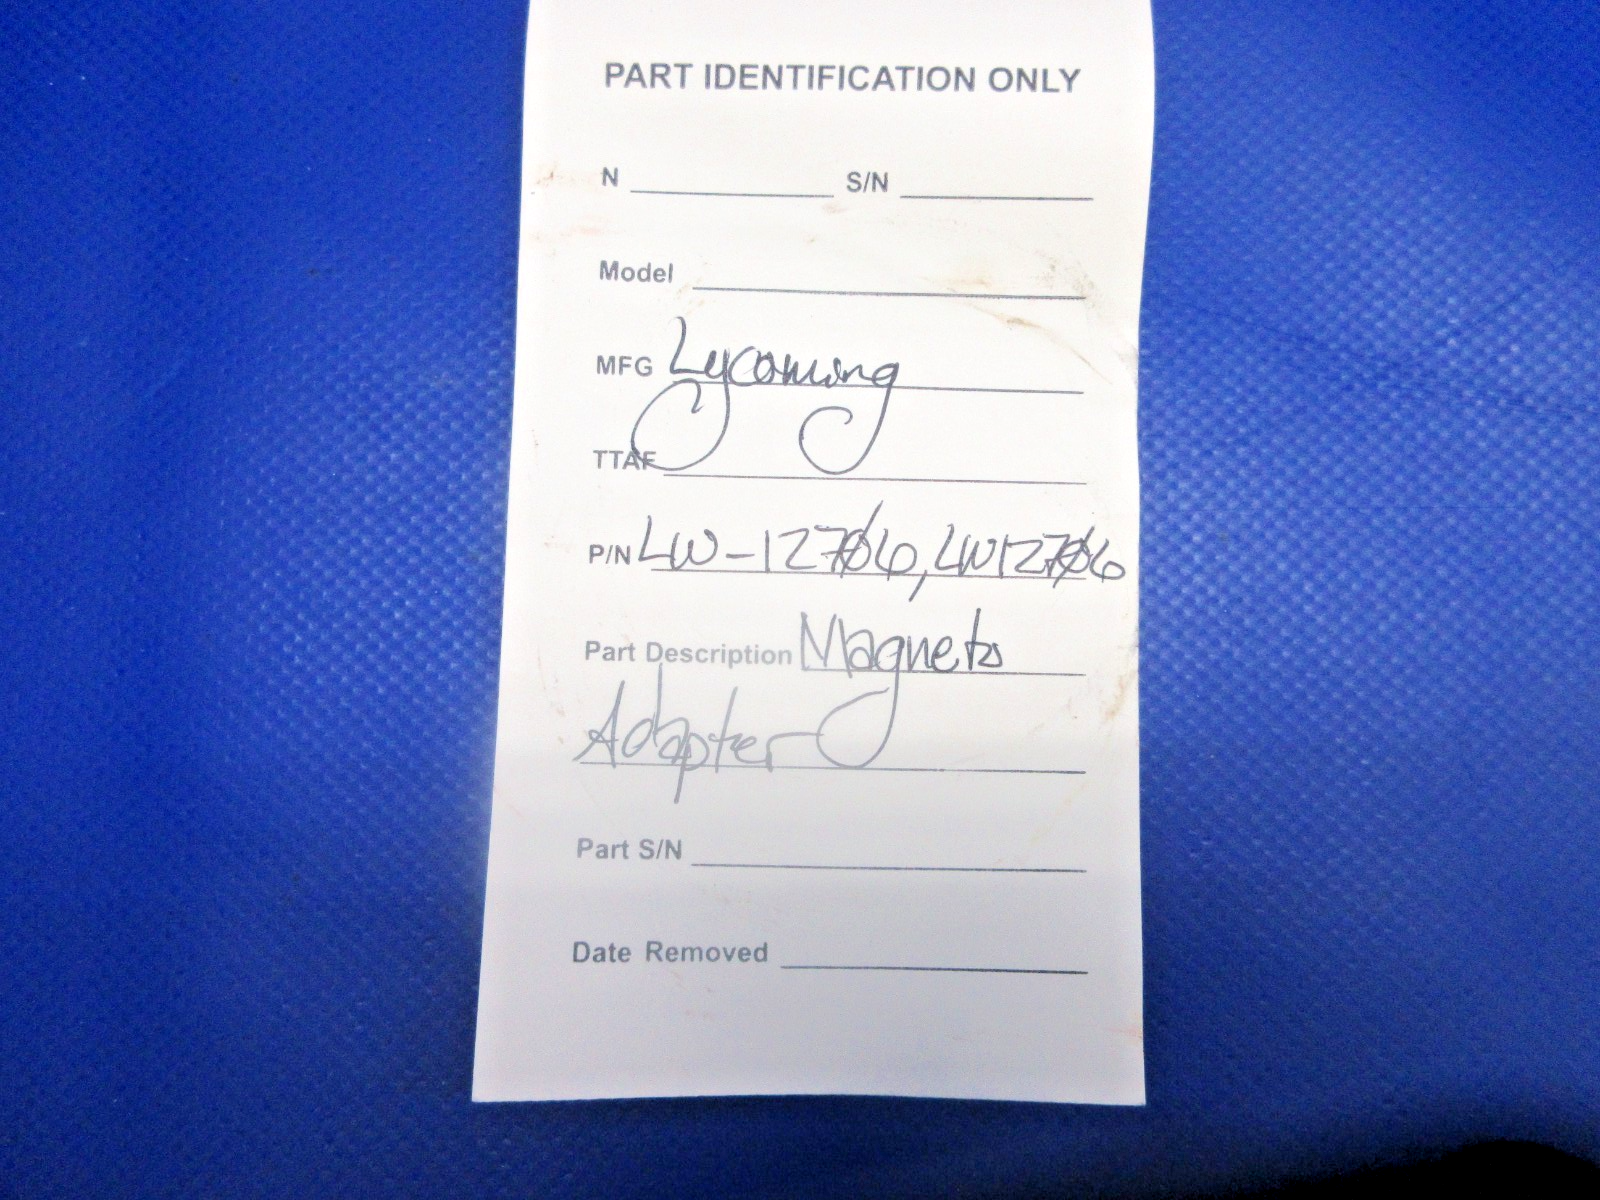 PART IDENTIFICATION ONLY
N S/N
Model
MFG Lycoming
TTAF
P/N LW-12706, LW12706
Part Description Magneto
Adapter
Part S/N
Date Removed